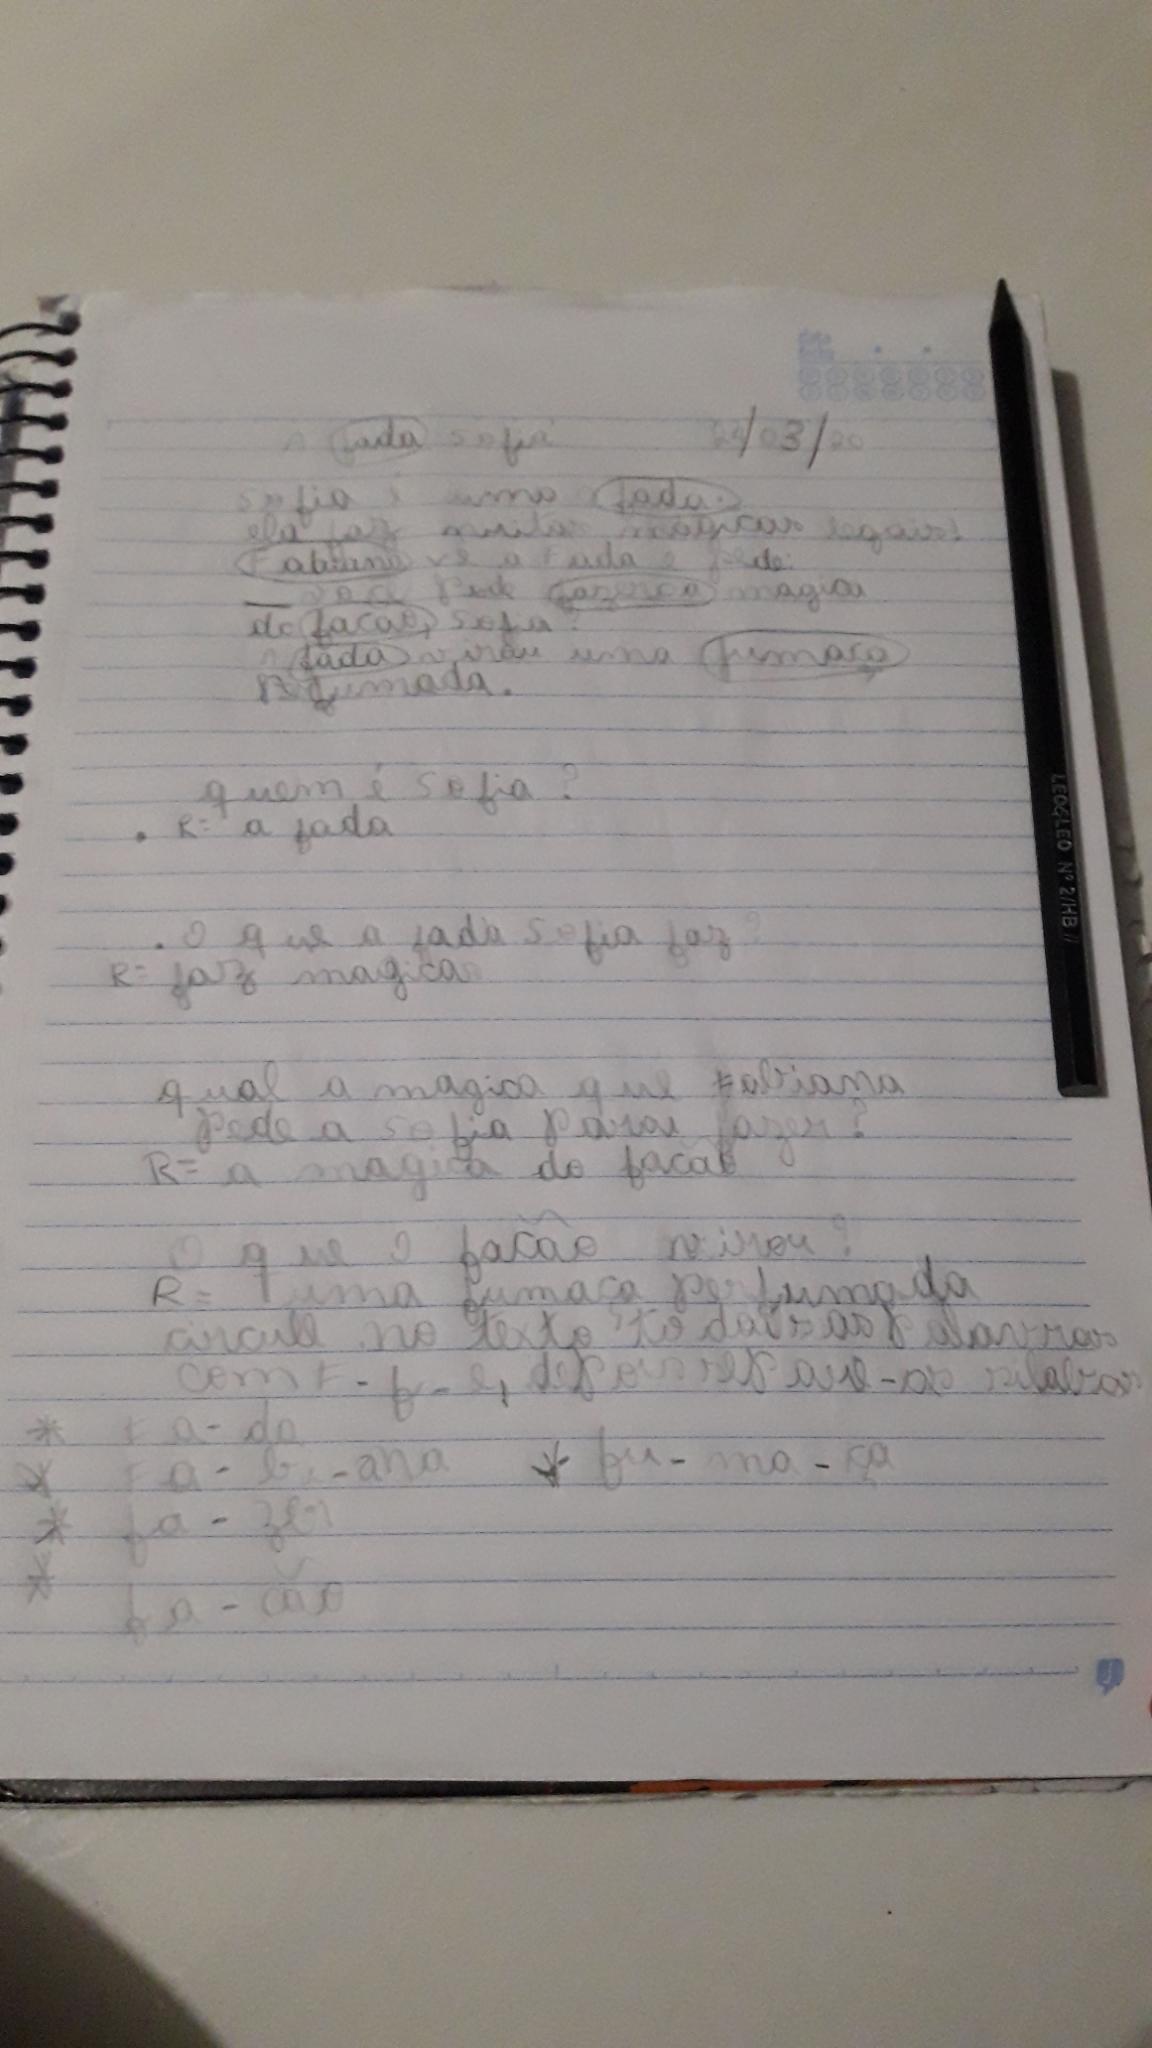 A fada sofia 24/03/20
sofia é uma fada.
ela faz muitas mágicas legais!
Fabiana vê a Fada e pede:
__ voce pode fazer a magica
do facão, sofia?
A fada virou uma fumaça
perfumada.
quem é sofia?
. R= a fada
. O que a fada sofia faz?
R= faz magica
qual a magica que Fabiana
pede a sofia para fazer?
R= a magica do facão
O que o facão virou?
R= uma fumaça perfumada
circule no texto todas as palavras
com F-f- e, depois separe-as silabas
* Fa-da
* Fa-bi-ana * fu-ma-ça
* fa-zer
* fa-cão
LEO&LEO Nº 2/HB //